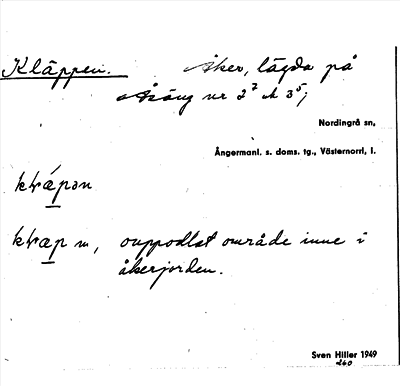 Kläppen. Åker, lägda på
Åsäng nr 2² A 3⁵;
Nordingrå sn,
Ångermanl. s. doms. tg., Västernorrl, l.
klæpm, ouppodlat område inne i
åkerjorden.
Sven Hiller 1949
260